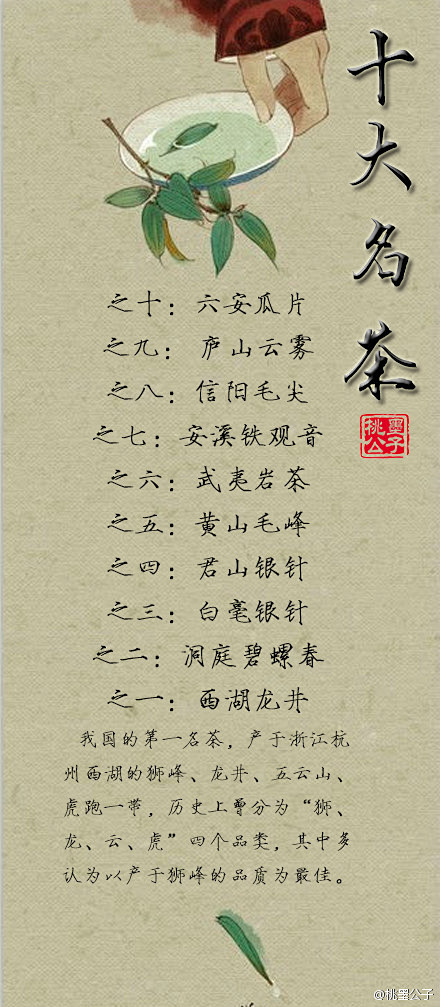 十大名茶
桃墨公子
之十：六安瓜片
之九：庐山云雾
之八：信阳毛尖
之七：安溪铁观音
之六：武夷岩茶
之五：黄山毛峰
之四：君山银针
之三：白毫银针
之二：洞庭碧螺春
之一：西湖龙井
我国的第一名茶，产于浙江杭
州西湖的狮峰、龙井、五云山、
虎跑一带，历史上曾分为“狮、
龙、云、虎”四个品类，其中多
认为以产于狮峰的品质为最佳。
@桃墨公子